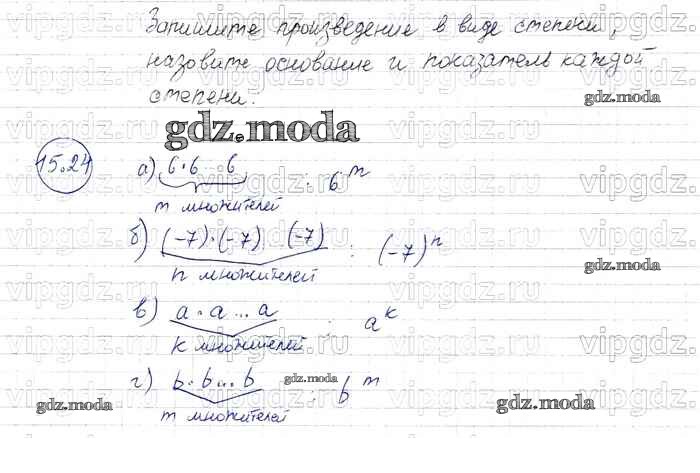 Запишите произведение в виде степени,
назовите основание и показатель каждой
степени.
gdz.moda
gdz.moda
15.24
а) 6·6...6 : 6^m
m множителей
б) (-7)·(-7) (-7) : (-7)^n
n множителей
gdz.moda
в) a·a...a : a^k
k множителей
г) b·b...b : b^m
gdz.moda
gdz.moda
gdz.moda
m множителей
vipgdz.ru